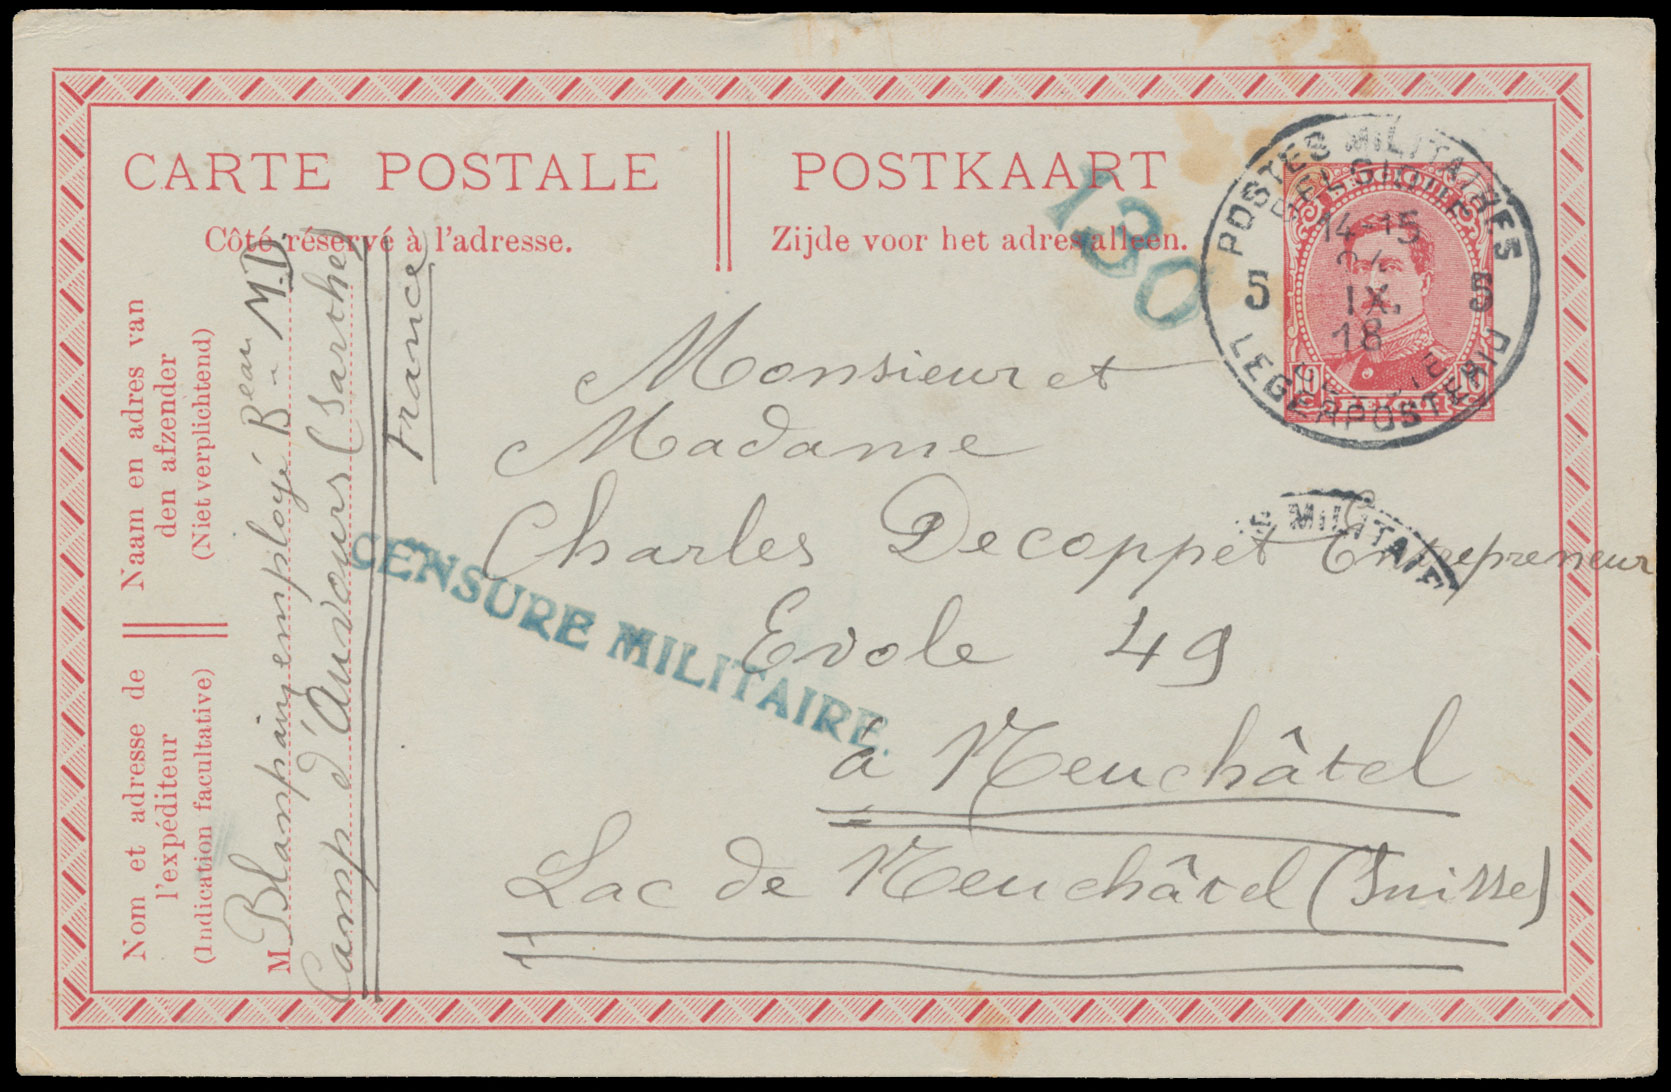 CARTE POSTALE
POSTKAART
Côté réservé à l'adresse.
Zijde voor het adres alleen.
130
POSTES MILITAIRES
BELGIQUE
14-15
IX.
18
5 5
LEGERPOSTERIJ
Monsieur et
Madame
Charles Decoppet Entrepreneur
Evole 49
à Neuchâtel
Lac de Neuchâtel (Suisse)
CENSURE MILITAIRE.
E MILITAIRE
Naam en adres van
den afzender
(Niet verplichtend)
Nom et adresse de
l'expéditeur
(Indication facultative)
M Blampain, employé Beau M.D.
Camp d'Auvours (Sarthe)
France